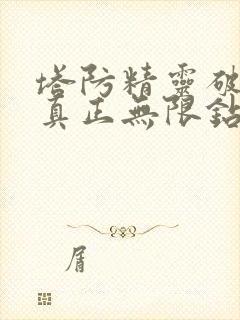 塔防精靈破
真正無限鉆
屑